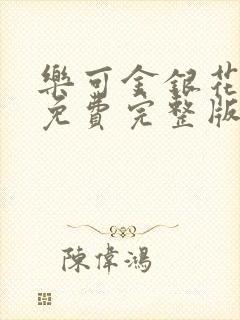 樂可金銀花
免費完整版
陳偉鴻